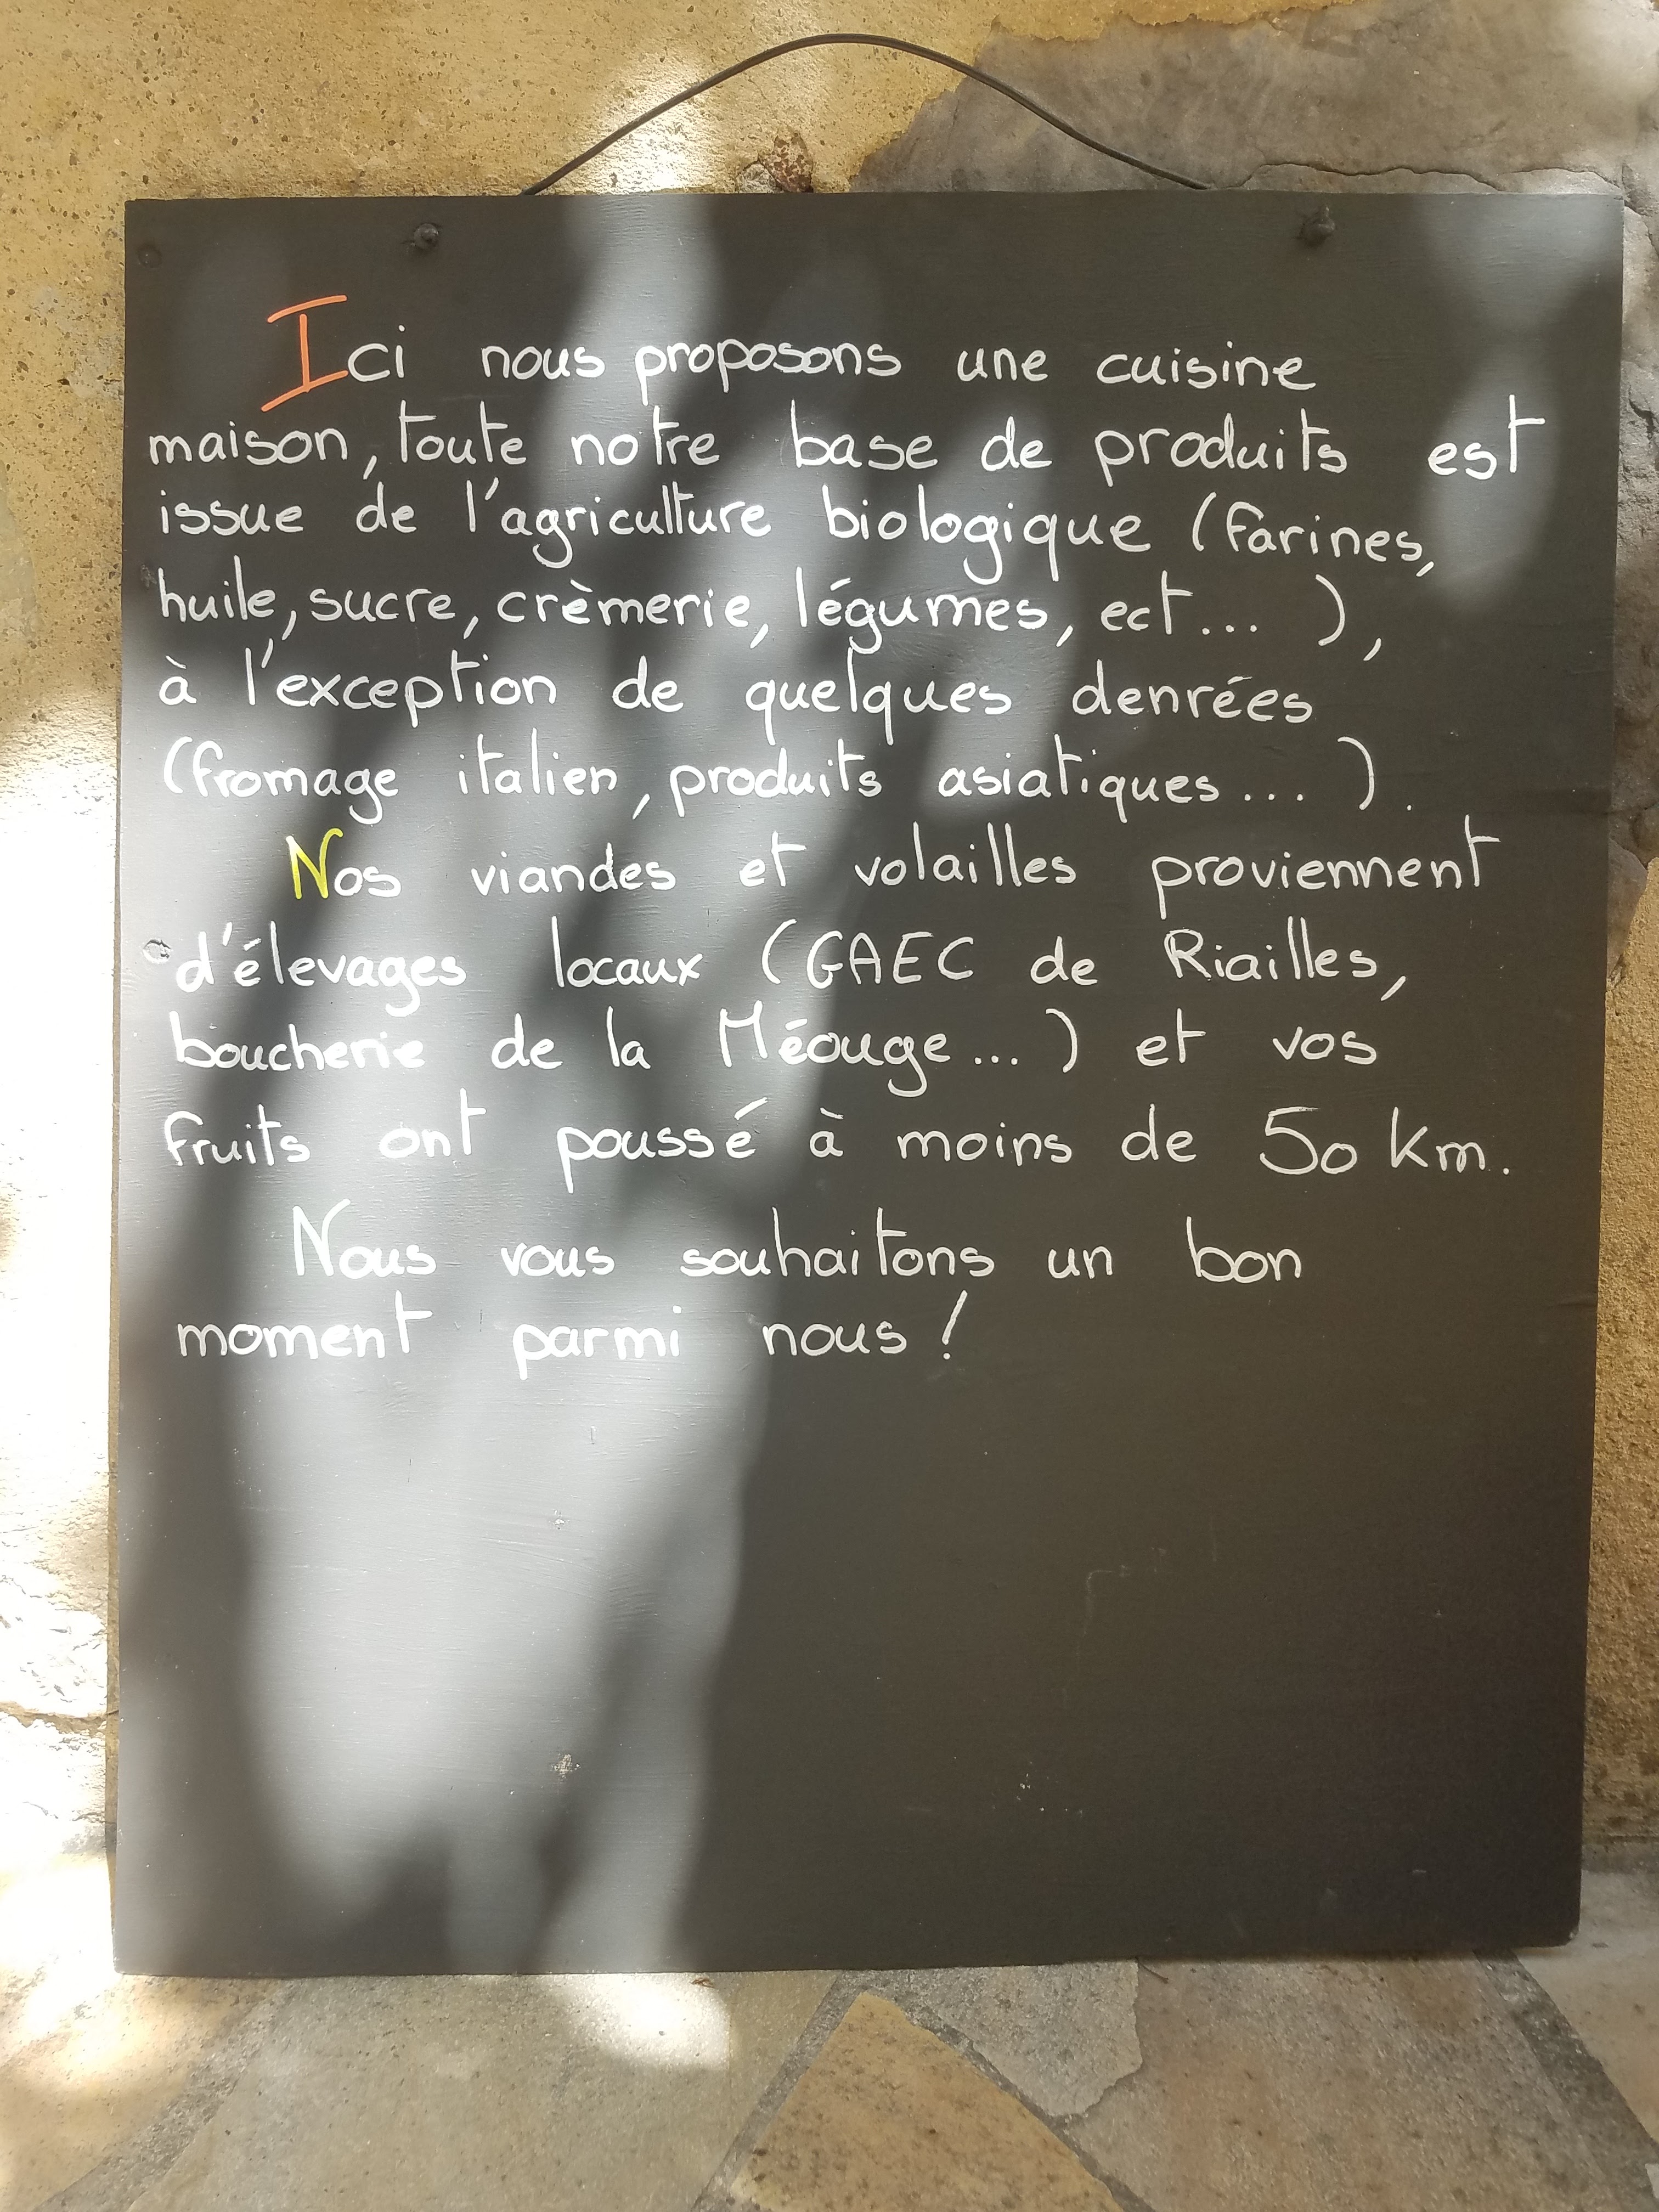 Ici nous proposons une cuisine
maison, toute notre base de produits est
issue de l'agriculture biologique (farines,
huile, sucre, crèmerie, légumes, ect... ),
à l'exception de quelques denrées
(fromage italien, produits asiatiques... ).
Nos viandes et volailles proviennent
d'élevages locaux (GAEC de Riailles,
boucherie de la Méouge... ) et vos
fruits ont poussé à moins de 50 km.
Nous vous souhaitons un bon
moment parmi nous !